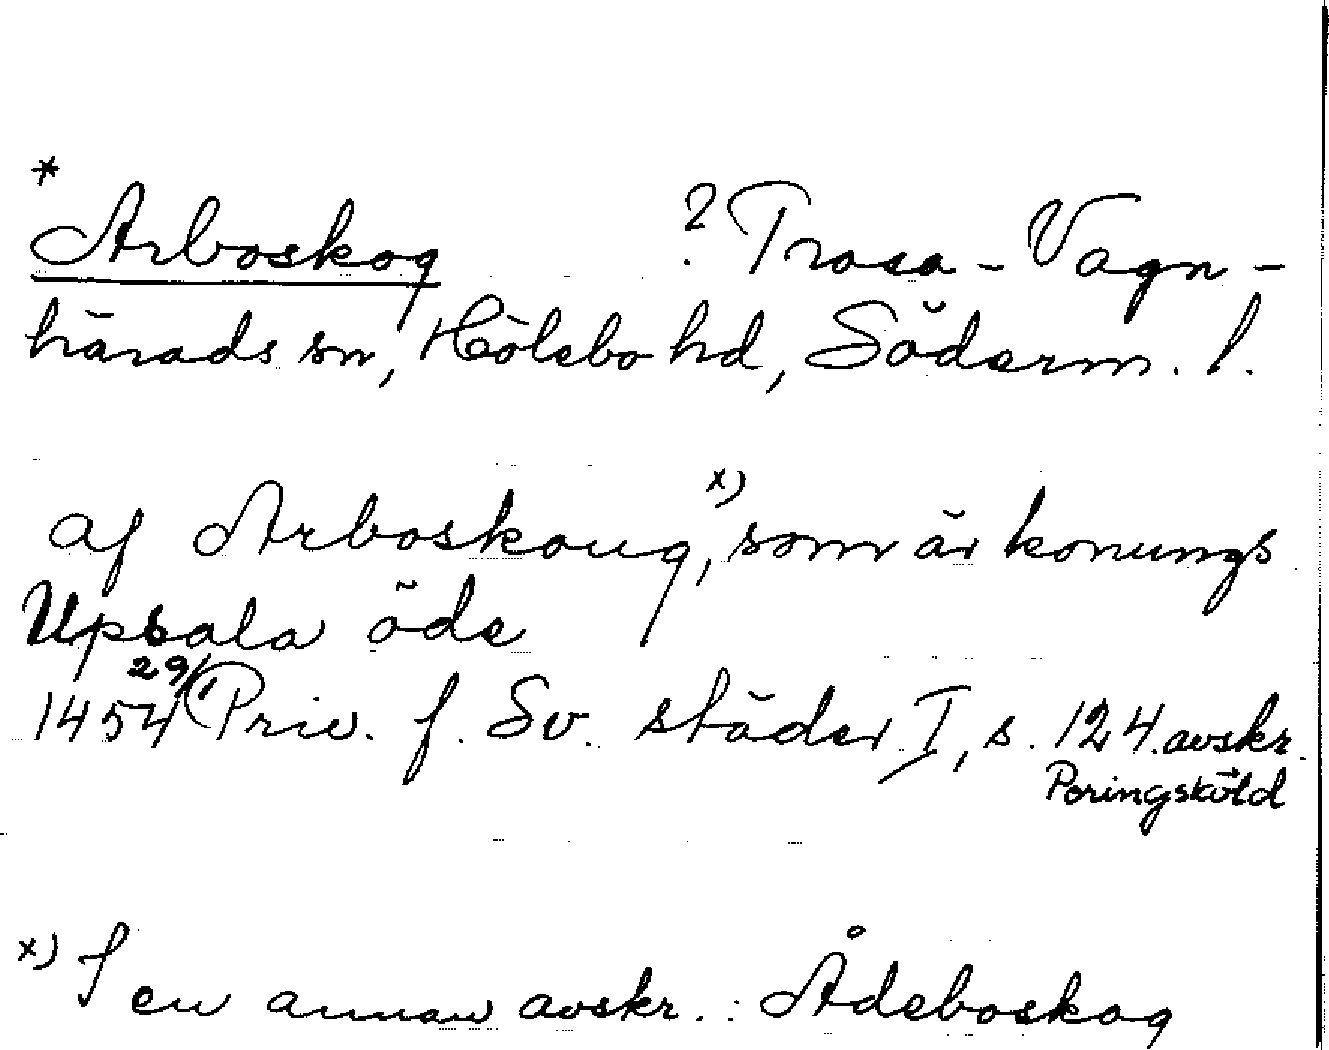 * Arboskog ? Trosa-Vagn-
härads sn, Hölebo hd, Söderm. l.
af Arboskoug, x) som är konungs
Upsala öde
1454 29/1 Priv. f. Sv. städer I, s. 124. avskr.
Peringsköld
x) I en annan avskr.: Ådeboskog